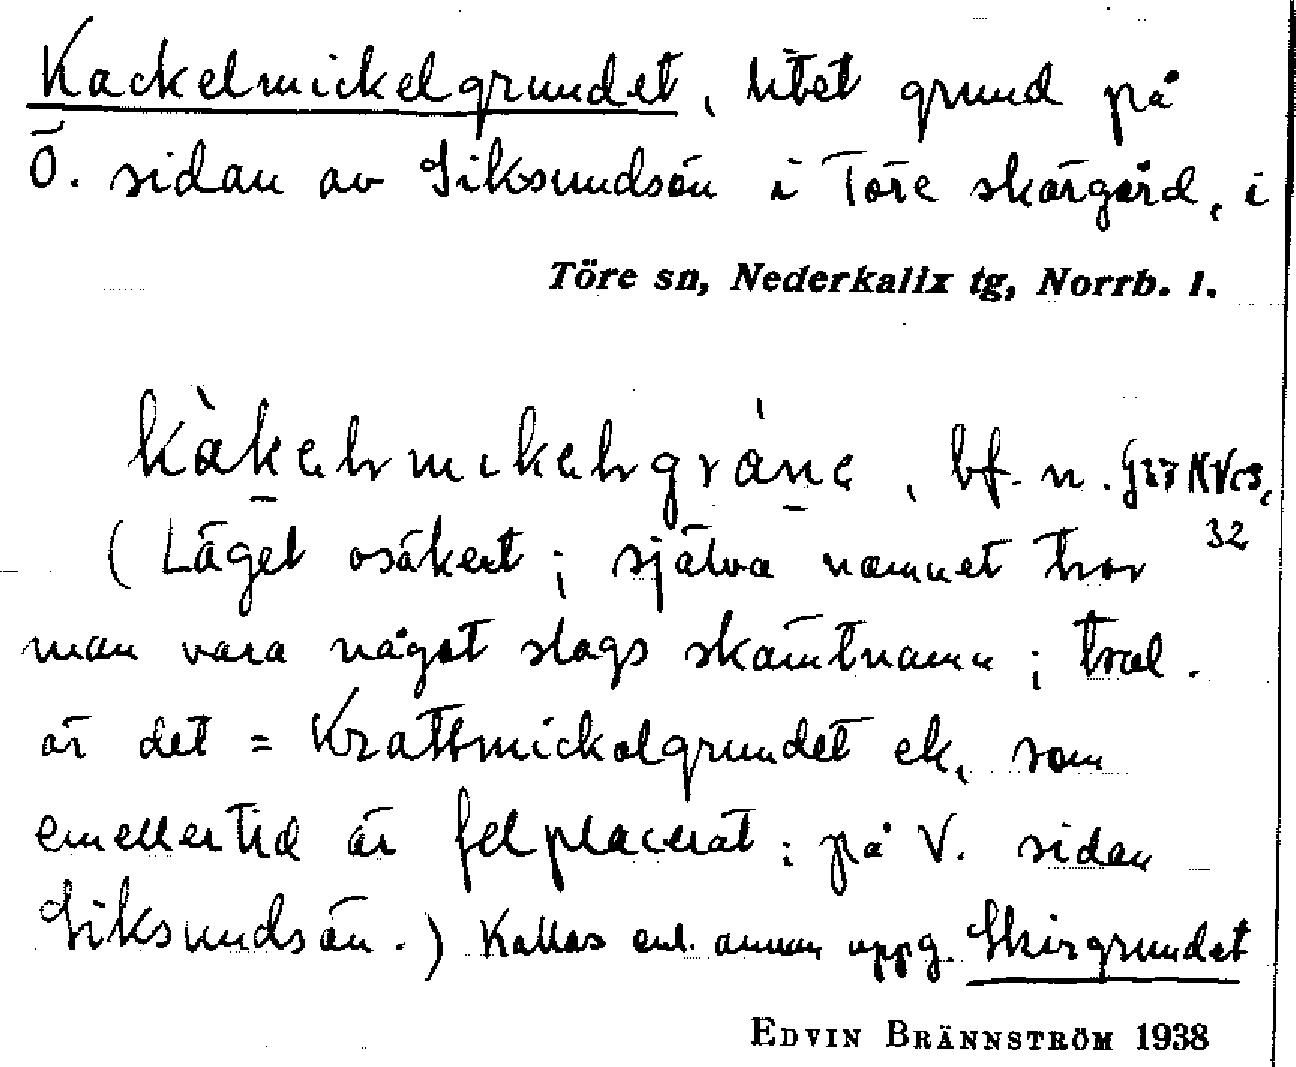 Kackelmickelgrundet, litet grund på
Ö. sidan av Siksundsön i Töre skärgård, i
Töre sn, Nederkalix tg, Norrb. l.
bf. n.
32
(Läget osäkert; själva namnet tror
man vara något slags skämtnamn; tval.
är det = Krattmickelgrundet ek, som
emellertid är felplacerat: på V. sidan
Siksundsön.) Kallas enl. annan uppg. Skirgrundet
EDVIN BRÄNNSTRÖM 1938